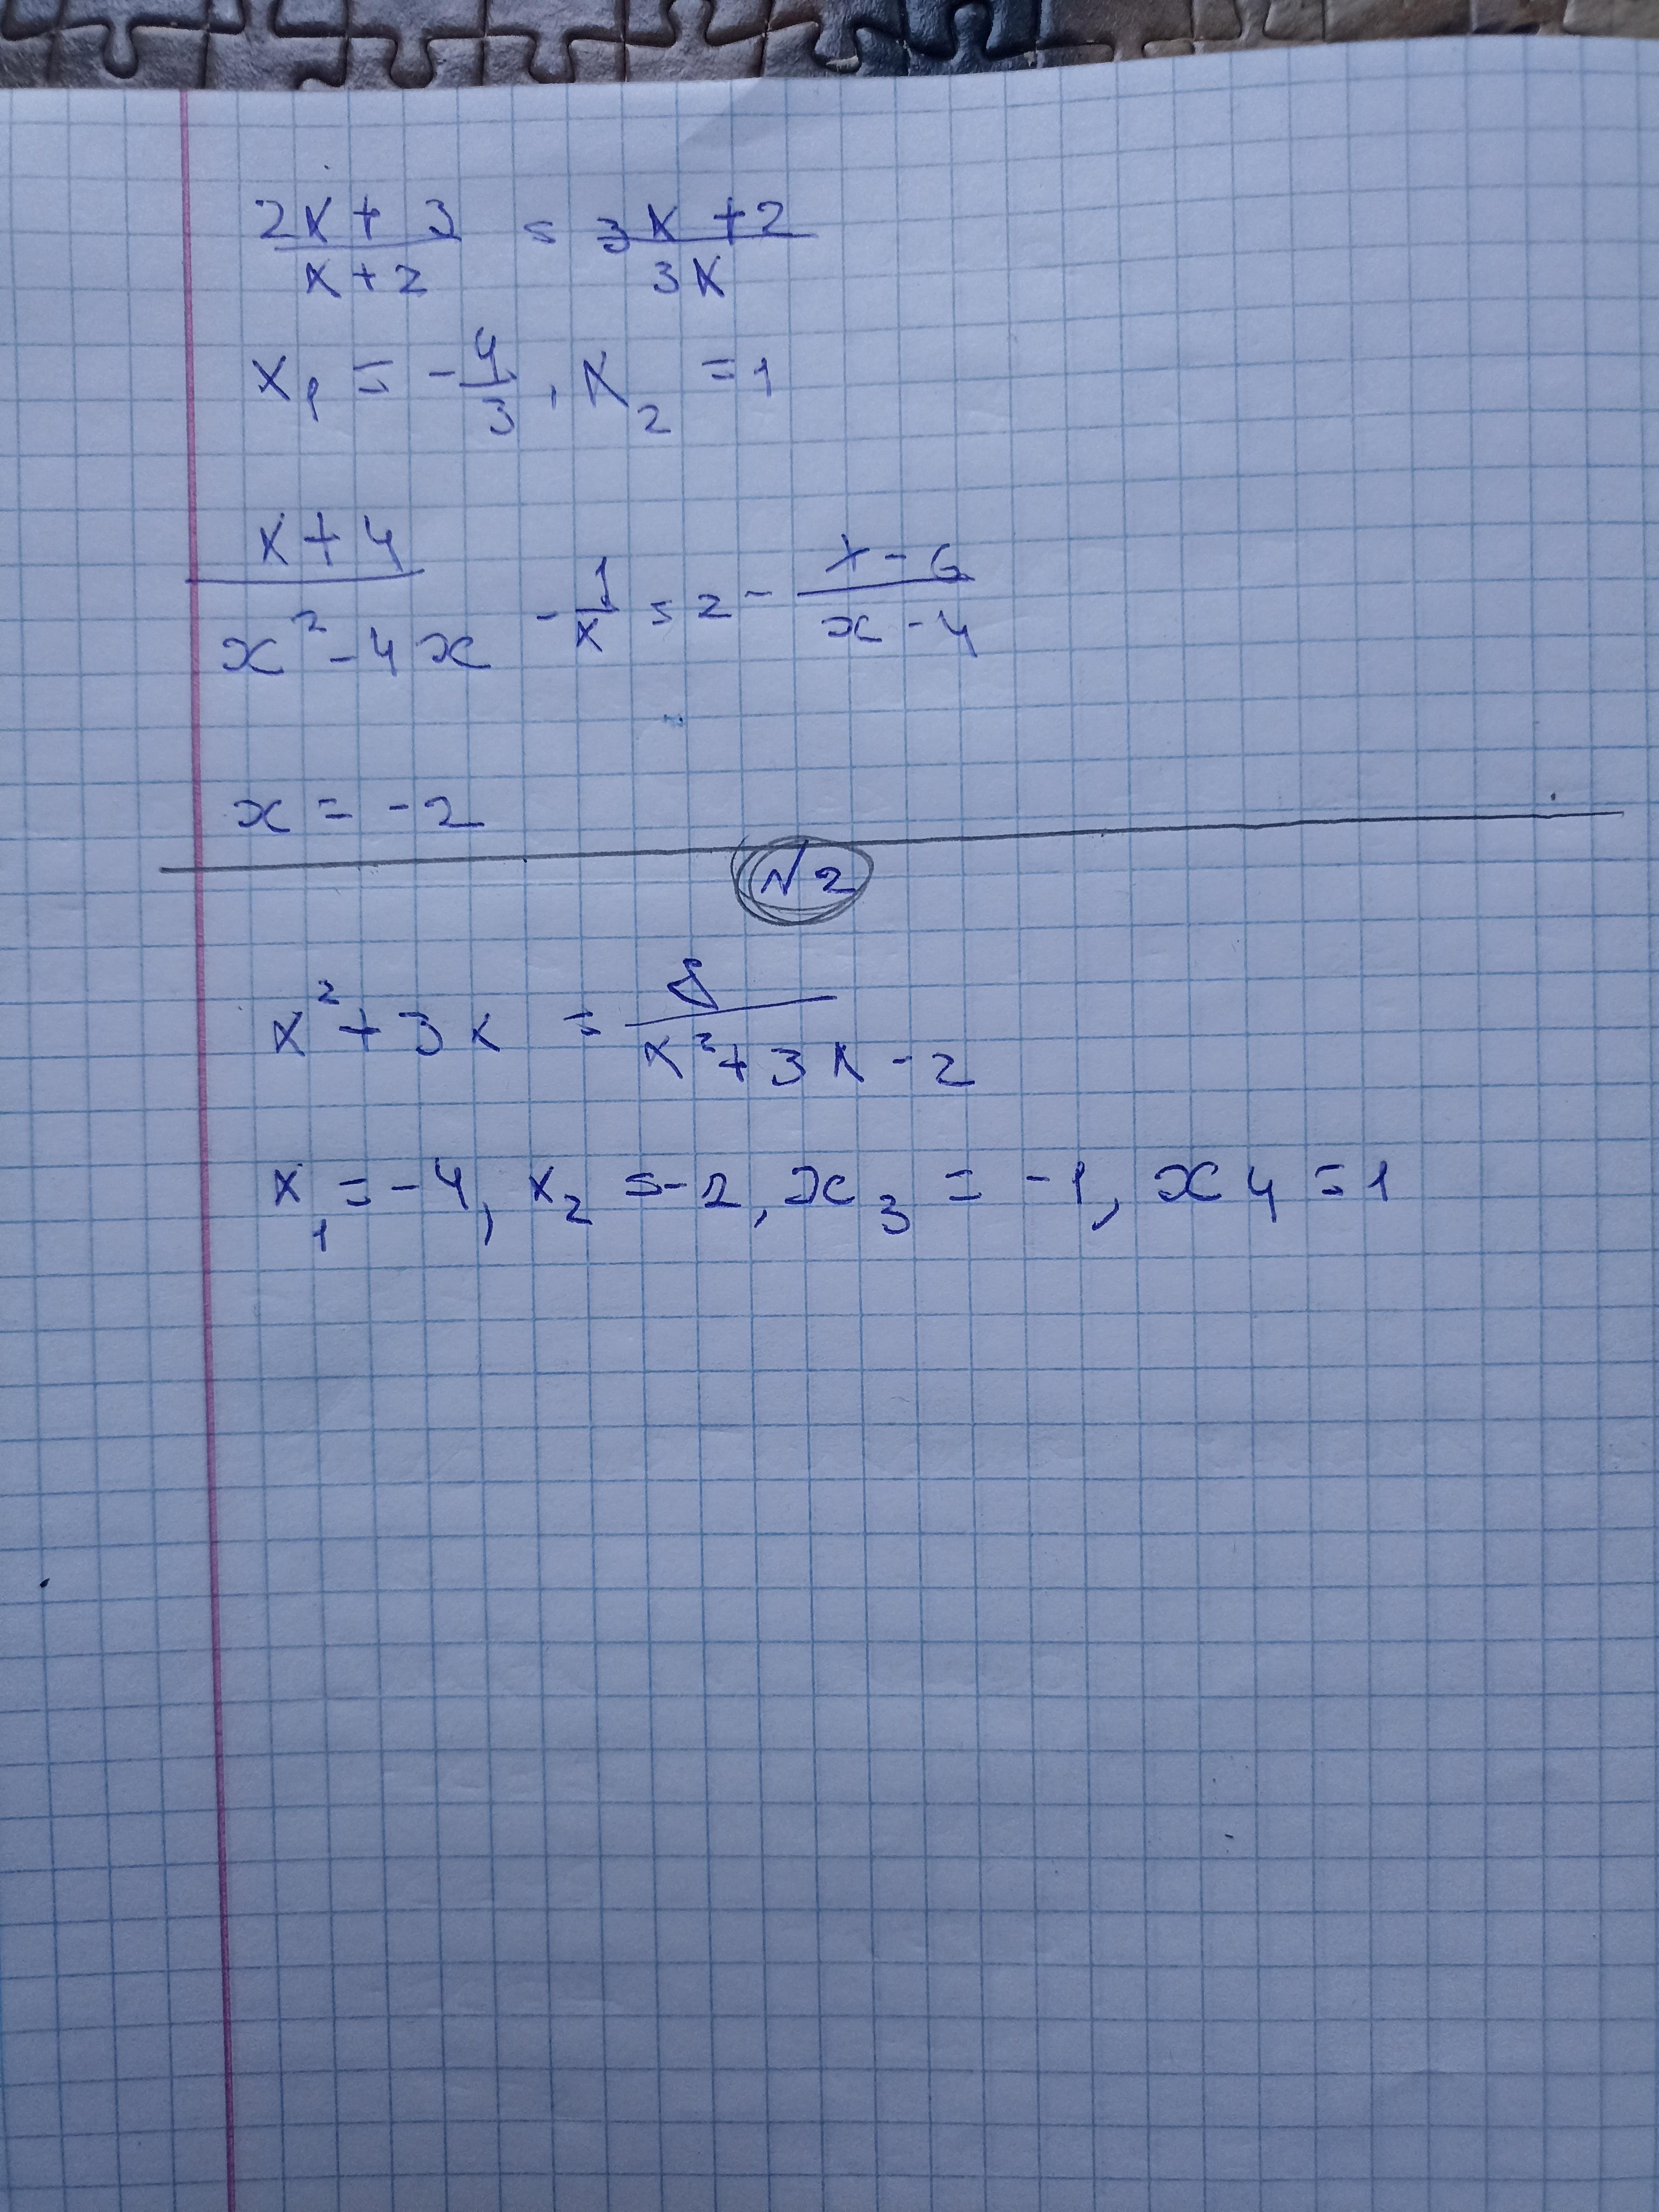 (2x + 3)/(x + 2) = (3x + 2)/(3x)
x₁ = -4/3, x₂ = 1
(x + 4)/(x² - 4x) - 1/x = 2 - (x - 6)/(x - 4)
x = -2
№2
x² + 3x = 8/(x² + 3x - 2)
x₁ = -4, x₂ = -2, x₃ = -1, x₄ = 1